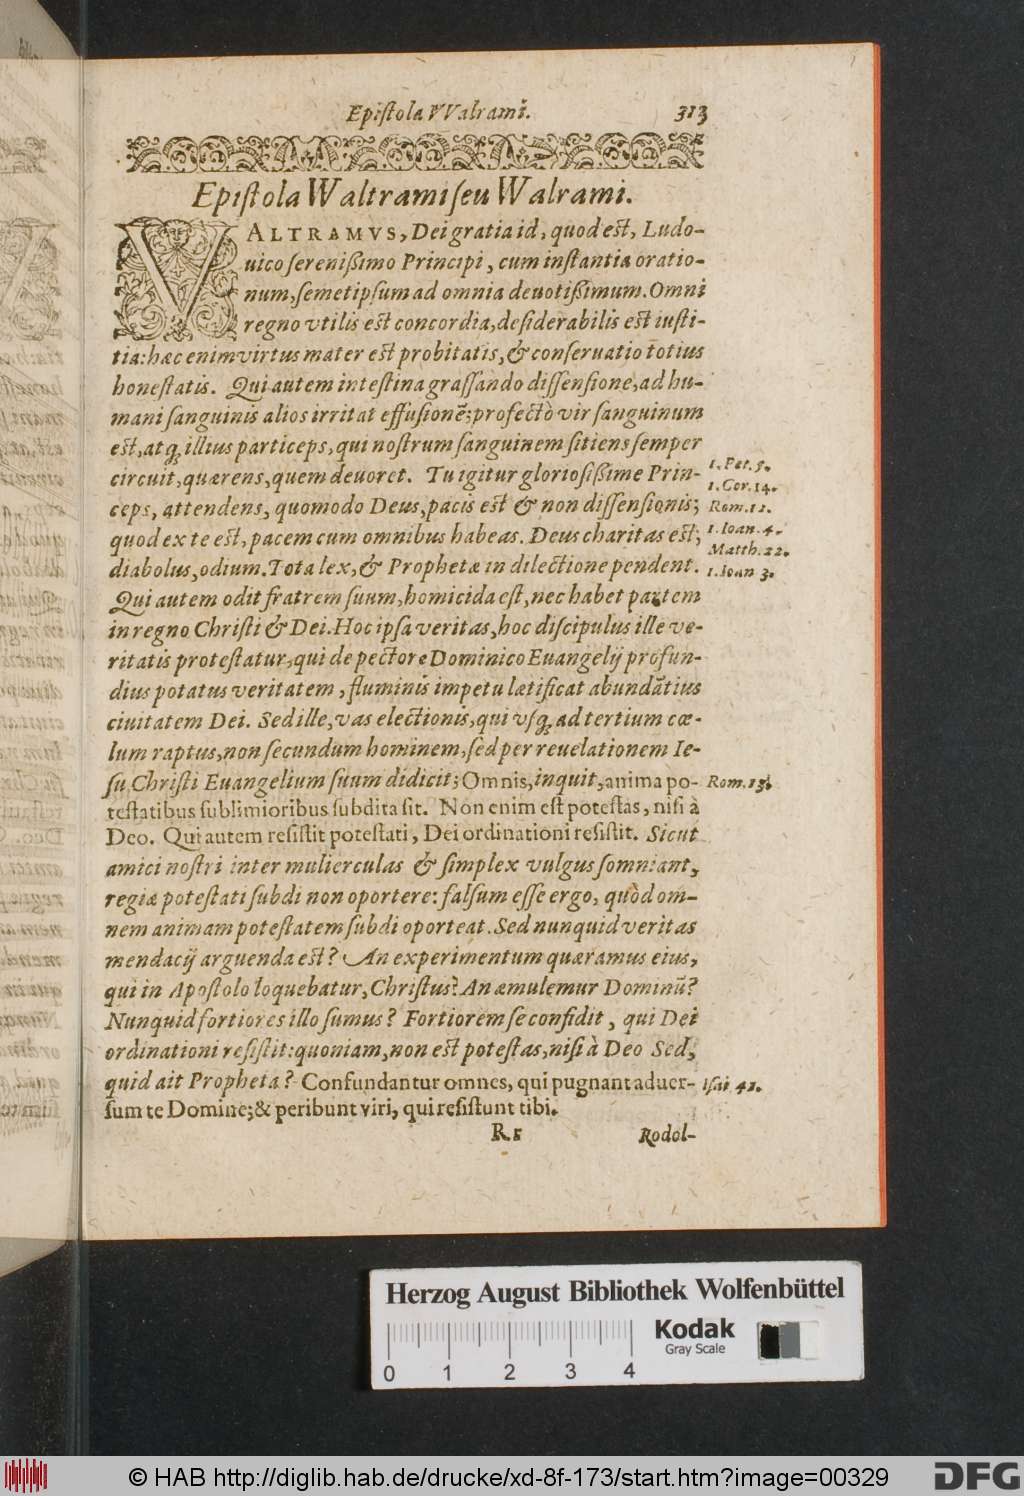 Epistola VValrami.
313
Epistola Waltrami seu Walrami.
VALTRAMVS, Dei gratia id, quod est, Ludo-
uico serenißimo Principi, cum instantia oratio-
num, semetipsum ad omnia deuotißimum. Omni
regno vtilis est concordia, desiderabilis est iusti-
tia: hæc enim virtus mater est probitatis, & conseruatio totius
honestatis. Qui autem intestina grassando dissensione, ad hu-
mani sanguinis alios irritat effusionẽ; profectò vir sanguinum
est, atq; illius particeps, qui nostrum sanguinem sitiens semper
circuit, quærens, quem deuoret. Tu igitur gloriosißime Prin-
1. Pet. 5.
ceps, attendens, quomodo Deus, pacis est & non dissensionis;
1. Cor. 14.
Rom. 12.
quod ex te est, pacem cum omnibus habeas. Deus charitas est;
1. Ioan. 4.
Matth. 22.
diabolus, odium. Tota lex, & Prophetæ in dilectione pendent.
1. Ioan 3.
Qui autem odit fratrem suum, homicida est, nec habet partem
in regno Christi & Dei. Hoc ipsa veritas, hoc discipulus ille ve-
ritatis protestatur, qui de pectore Dominico Euangelij profun-
dius potatus veritatem, fluminis impetu lætificat abundãtius
ciuitatem Dei. Sed ille, vas electionis, qui vsq; ad tertium cœ-
lum raptus, non secundum hominem, sed per reuelationem Ie-
su Christi Euangelium suum didicit; Omnis, inquit, anima po-
Rom. 13.
testatibus sublimioribus subdita sit. Non enim est potestas, nisi à
Deo. Qui autem resistit potestati, Dei ordinationi resistit. Sicut
amici nostri inter mulierculas & simplex vulgus somniant,
regiæ potestati subdi non oportere: falsum esse ergo, quòd om-
nem animam potestatem subdi oporteat. Sed nunquid veritas
mendacij arguenda est? An experimentum quæramus eius,
qui in Apostolo loquebatur, Christus? An æmulemur Dominũ?
Nunquid fortiores illo sumus? Fortiorem se confidit, qui Dei
ordinationi resistit: quoniam, non est potestas, nisi à Deo Sed,
quid ait Propheta? Confundantur omnes, qui pugnant aduer-
Isai. 41.
sum te Domine; & peribunt viri, qui resistunt tibi.
Rodol-
Herzog August Bibliothek Wolfenbüttel
Kodak
Gray Scale
0 1 2 3 4
© HAB http://diglib.hab.de/drucke/xd-8f-173/start.htm?image=00329
DFG